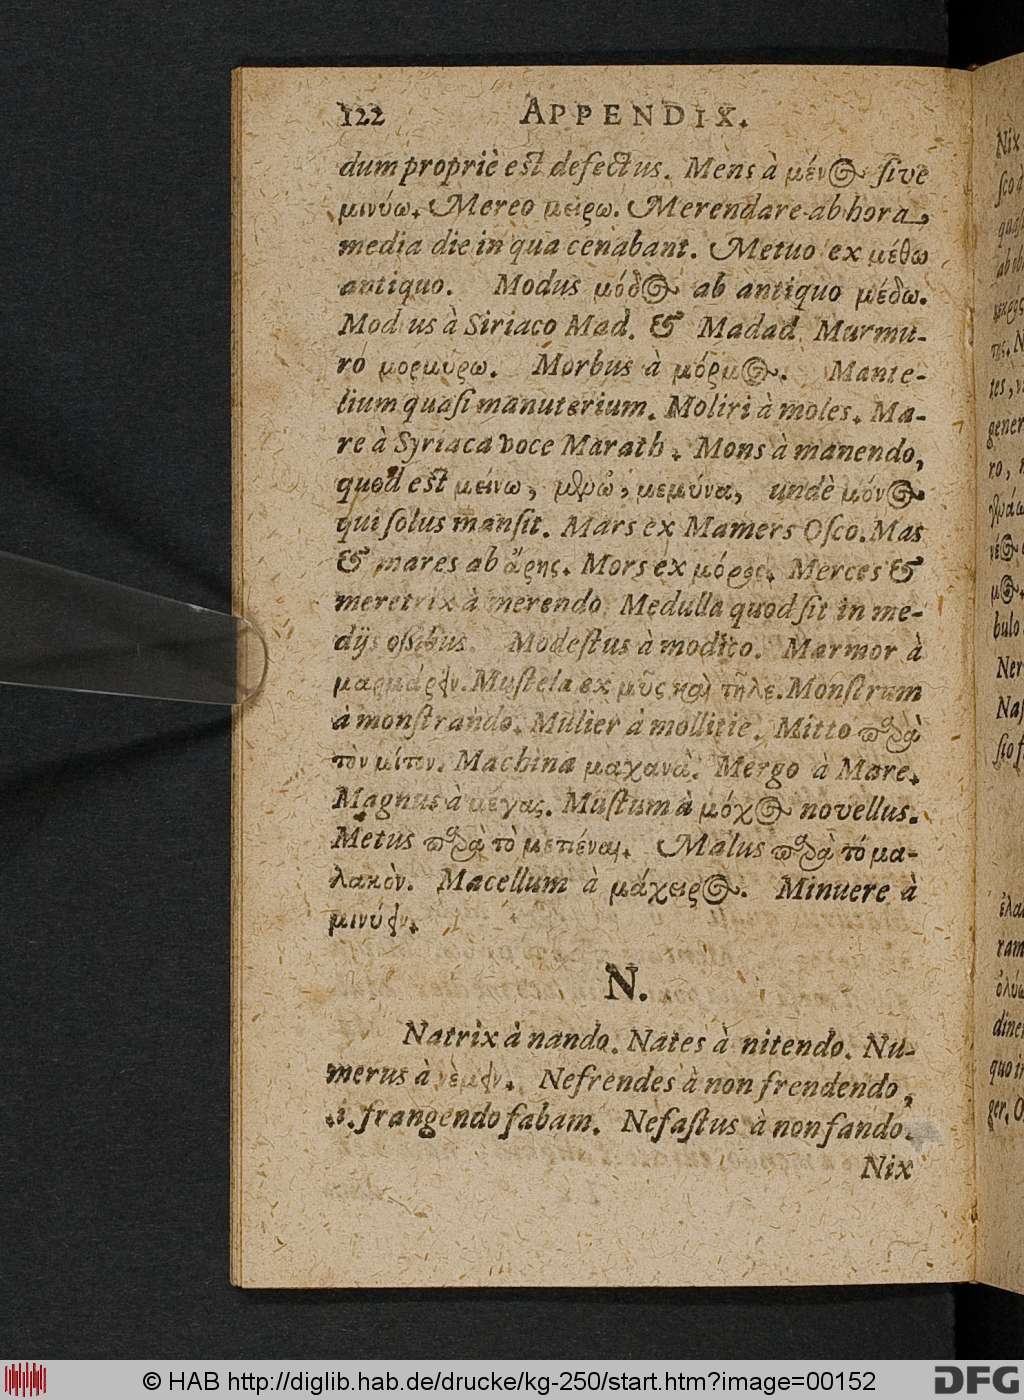 122 APPENDIX.
dum propriè est defectus. Mens à μένος sive
μινύω. Mereo μείρω. Merendare ab hora,
media die in qua cenabant. Metuo ex μέθω
antiquo. Modus μόδος ab antiquo μέδω.
Modius à Siriaco Mad. & Madad Murmu-
ro μορμύρω. Morbus à μόρμος. Mante-
lium quasi manuterium. Moliri à moles. Ma-
re à Syriaca voce Marath. Mons à manendo,
quod est μείνω, μενῶ, μεμύνα, undè μόνος
qui solus mansit. Mars ex Mamers Osco. Mas
& mares ab ἄρης. Mors ex μόρος. Merces &
meretrix à merendo Medulla quod sit in me-
dijs ossibus. Modestus à modico. Marmor à
μαρμάρειν. Mustela ex μῦς καὶ τῆλε. Monstrum
à monstrando. Mulier à mollitie. Mitto παρὰ
τὸν μίτον. Machina μαχανὰ. Mergo à Mare.
Magnus à μέγας. Mustum à μόχος novellus.
Metus παρὰ τὸ μετιέναι. Malus παρὰ τό μα-
λακὸν. Macellum à μάχειρος. Minuere à
μινύειν.
N.
Natrix à nando. Nates à nitendo. Nu-
merus à νέμειν. Nefrendes à non frendendo,
.i. frangendo fabam. Nefastus à non fando.
Nix
© HAB http://diglib.hab.de/drucke/kg-250/start.htm?image=00152
DFG